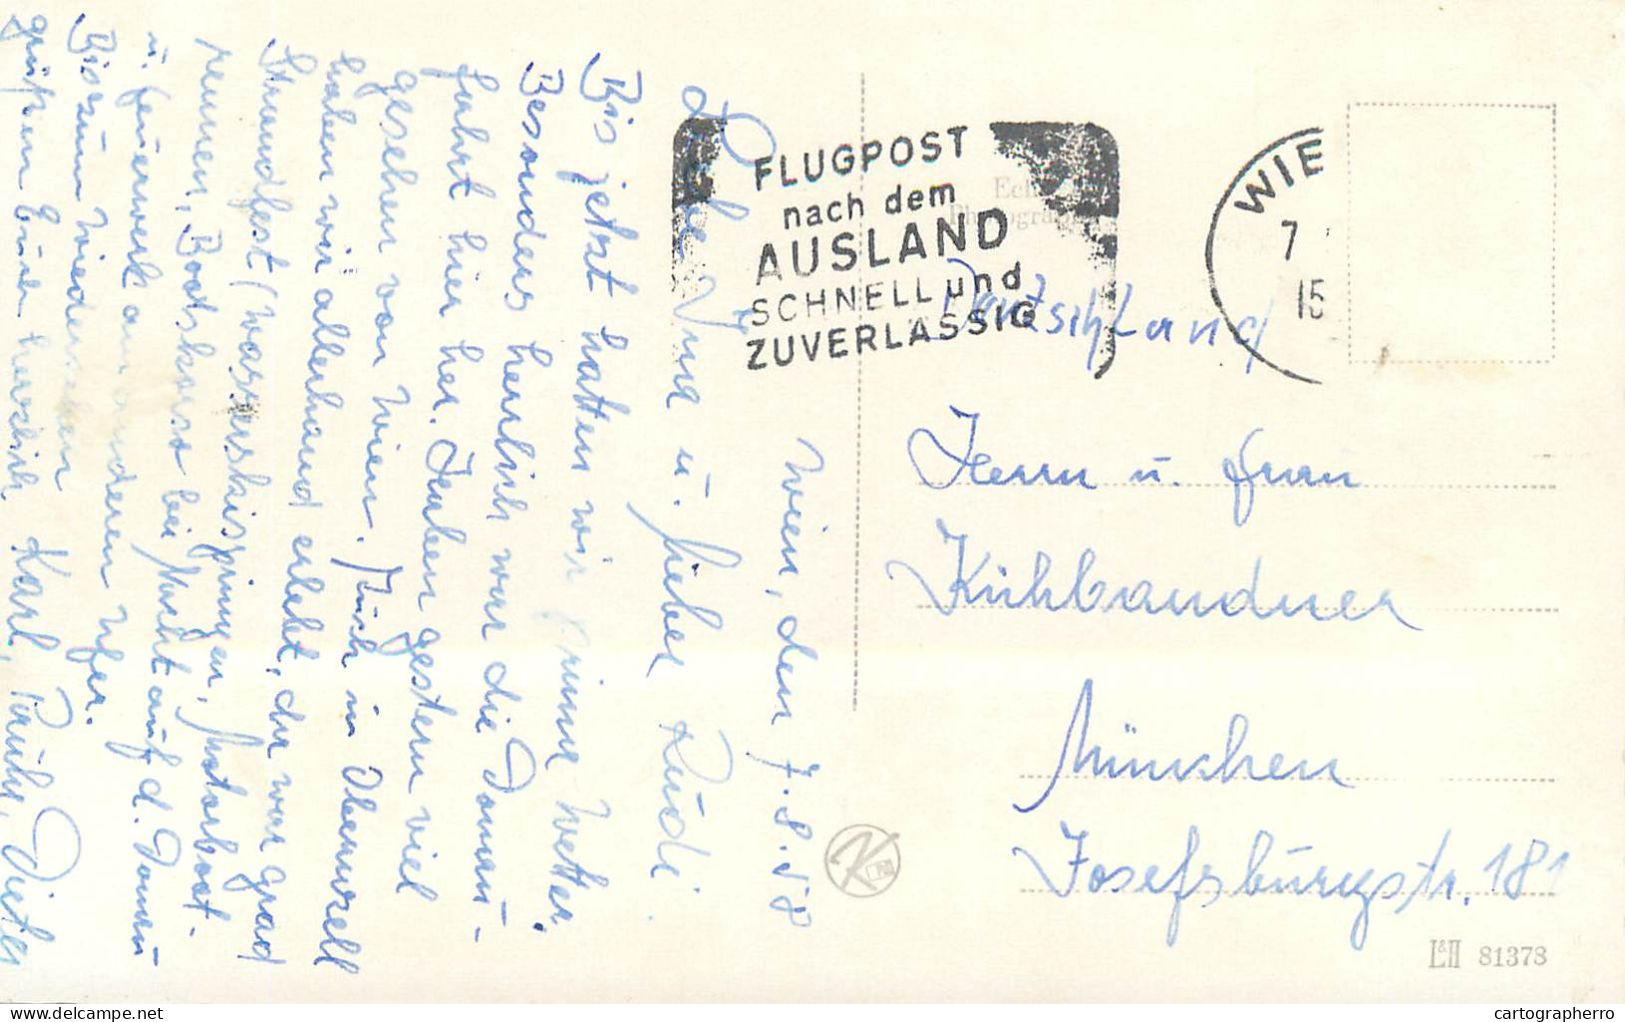 Wien, den 7.8.58
Liebe Lina u. lieber Rudi.
Bis jetzt hatten wir prima Wetter.
Besonders herrlich war die Donau-
fahrt hier her. Haben gestern viel
gesehen von Wien. Auch in Obernzell
haben wir allerhand erlebt, da war grad
Strandfest (Wasserskispringen, Motorboot-
rennen, Bootskorso bei Nacht auf d. Donau
u. Feuerwerk am anderen Ufer.
Bis zum Wiedersehen
grüßen Euch herzlich Karl, Pauli, Dieter
FLUGPOST
nach dem
AUSLAND
SCHNELL und
ZUVERLÄSSIG
WIE
7
15
Echte
Photographie
Deutschland
Herrn u. Frau
Kühbandner
München
Josefsburgstr. 181
K
L&H 81378
www.delcampe.net
cartographerro